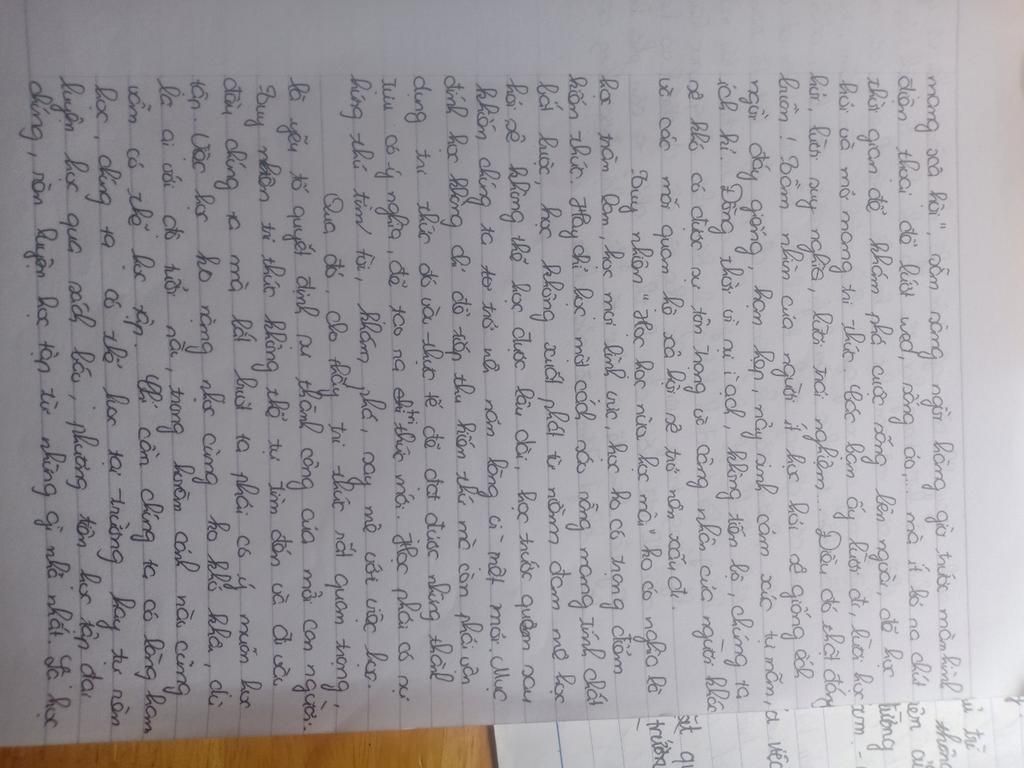 mạng xã hội", sẵn sàng ngồi hàng giờ trước màn hình
điện thoại để lướt web, sống ảo,... mà ít bỏ ra chút
thời gian để khám phá cuộc sống bên ngoài, để học
hỏi và mở mang tri thức. Các bạn ấy lười đi, lười học
hỏi, lười suy nghĩ, lười trải nghiệm... Điều đó thật đáng
buồn! Tầm nhìn của người ít học hỏi sẽ giống ếch
ngồi đáy giếng, hạn hẹp, nảy sinh cảm xúc tự mãn,
ích kỉ. Đồng thời vì sự ì ạch, không tiến bộ, chúng ta
sẽ khó có được sự tôn trọng và công nhận của người khác
và các mối quan hệ xã hội sẽ trở nên xấu đi.
Tuy nhiên "Học, học nữa, học mãi" không có nghĩa là
học tràn lan, học mọi lĩnh vực, học không có trọng điểm
kiến thức. Hay chỉ học một cách sáo rỗng mang tính chất
bắt buộc, học không xuất phát từ niềm đam mê học
hỏi sẽ không thể học được lâu dài, học trước quên sau
khiến chúng ta trở nên nản lòng và mệt mỏi. Mục
đích học không chỉ để tiếp thu kiến thức mà còn phải vận
dụng tri thức đó vào thực tế để đạt được những thành
tựu có ý nghĩa, để tạo ra tri thức mới. Học phải có sự
hứng thú tìm tòi, khám phá, say mê với việc học.
Qua đó, cho thấy tri thức rất quan trọng,
là yếu tố quyết định sự thành công của mỗi con người.
Tuy nhiên tri thức không thể tự tìm đến và đi vào
đầu chúng ta mà bắt buộc ta phải có ý muốn học
tập. Việc học hỏi không nhọc cũng không khó khăn, dù
là ai với độ tuổi nào, trong hoàn cảnh nào cũng
vẫn có thể học tập. Chỉ cần chúng ta có lòng ham
học, chúng ta có thể học tại trường hay tự rèn
luyện học qua sách báo, phương tiện học tập đại
chúng, rèn luyện học tập từ những gì nhỏ nhất. Là học